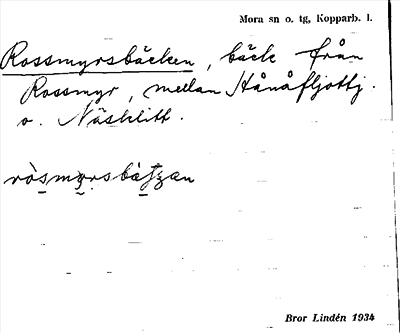 Mora sn o. tg, Kopparb. l.
Rossmyrsbäcken, bäck från
Rossmyr, mellan Hånåfljottj.
o. Näsklitt.
ròsmyrsbàtzan
Bror Lindén 1934